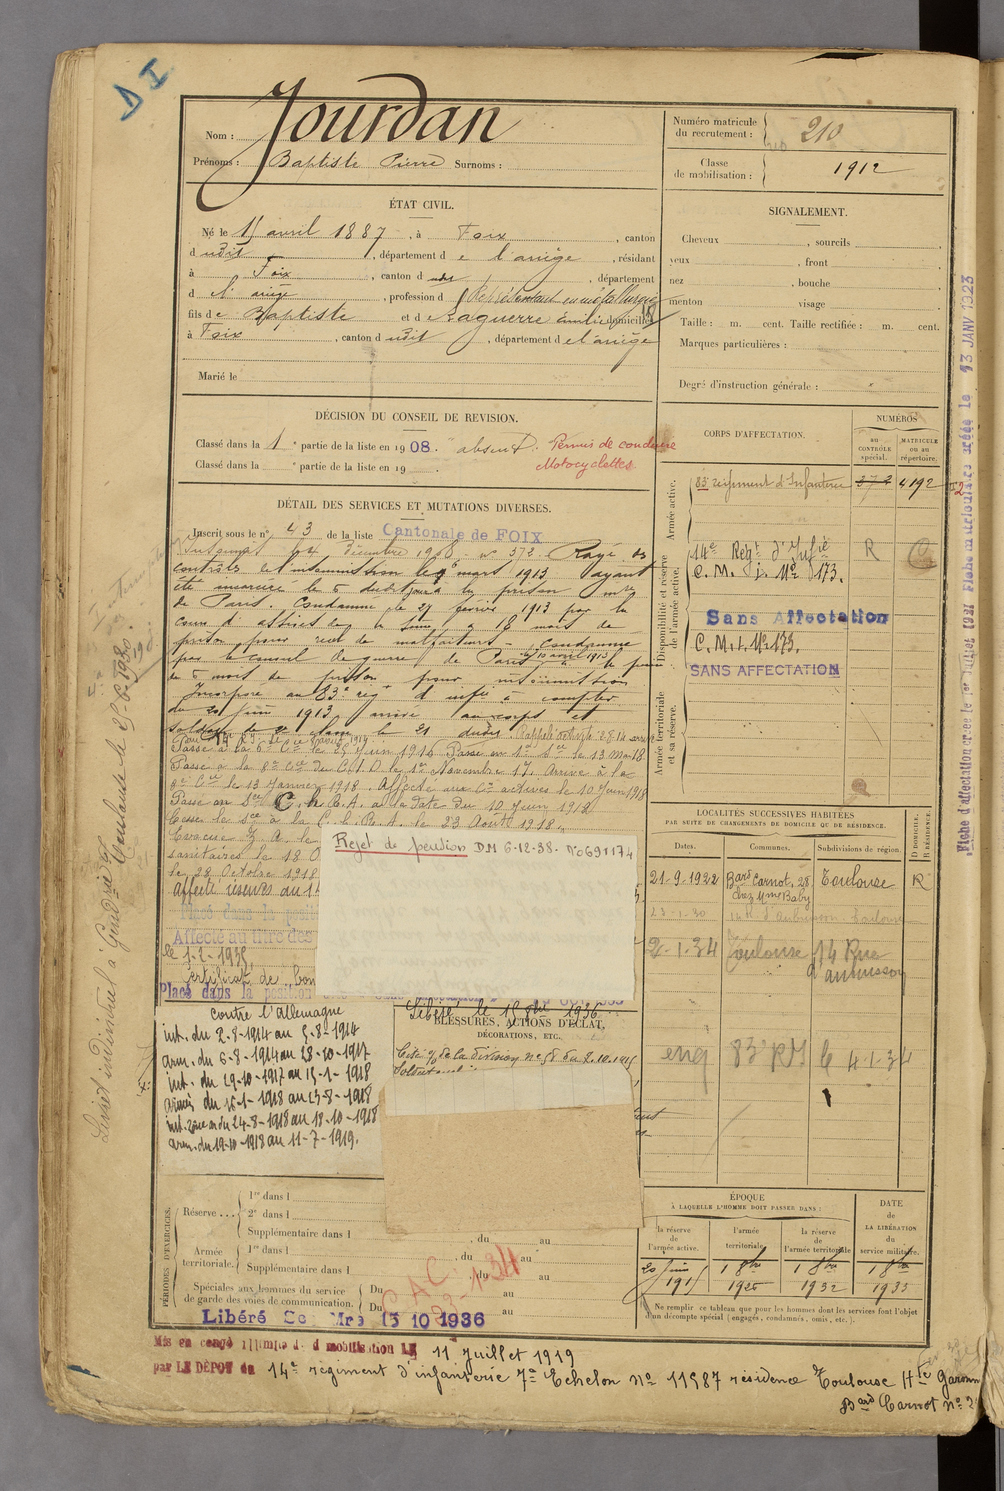 D I
Nom : Jourdan
Prénoms : Baptiste Pierre Surnoms :
Numéro matricule
du recrutement : 210
Classe
de mobilisation : 1912
ÉTAT CIVIL.
Né le 15 avril 1887, à Foix, canton
dudit, département de l'ariège, résidant
à Foix, canton dudit, département
d l'ariège, profession d Représentant en métallurgie
fils de Baptiste et de Laguerre Emilie domiciliés
à Foix, canton dudit, département de l'ariège
Marié le
SIGNALEMENT.
Cheveux , sourcils
yeux , front
nez , bouche
menton visage
Taille : m. cent. Taille rectifiée : m. cent.
Marques particulières :
Degré d'instruction générale :
DÉCISION DU CONSEIL DE REVISION.
Classé dans la 1 e partie de la liste en 1908. absent. Permis de conduire
Classé dans la e partie de la liste en 19 . Motocyclettes
DÉTAIL DES SERVICES ET MUTATIONS DIVERSES.
Inscrit sous le n° 43 de la liste Cantonale de FOIX
décembre 1908 n° 372. Rayé des
contrôles de l'insoumission le 6 mars 1913 ayant
été incarcéré le 5 dudit jour à la prison mre
de Paris. Condamné le 27 février 1913 par la
cour d'assises de la Seine à 18 mois de
prison pour recel de malfaiteurs - Condamné
par le conseil de guerre de Paris le 10 avril 1913 à la peine
de 5 mois de prison pour insoumission
Incorporé au 83e rég d'infie à compter
du 20 Juin 1913 arrivé au corps et
soldat de 2e classe le 21 dudit. Rappelé activité
Passé à la 6e Cie le 25 Juin 1916 Passé
Passé à la 8e Cie du C.I.D. le 1er Novembre 17. Arrivé à la
9e Cie le 13 Janvier 1918. Affecté aux Cies actives le 10 Juin 1918
Passé au Sce C.h.R.A. à la date du 10 Juin 1918
Cesse le Sce à la C.h.R.A. le 23 Août 1918.
Evacué Z.A. le
sanitaires le 18 O
le 28 Octobre 1918
Affecté réserves du 14
Placé dans la posit
Affecté au titre des
le 1-1-1935
Certificat de bon
Placé dans la position
Rejet de pension DM 6-12-38. N°0691174
Libéré le 15 8bre 1936
contre l'allemagne
int. du 2-8-1914 au 5-8-1914
arm. du 6-8-1914 au 28-10-1917
int. du 29-10-1917 au 15-1-1918
armées du 16-1-1918 au 23-8-1918
int. zône a du 24-8-1918 au 18-10-1918
arm. du 19-10-1918 au 11-7-1919.
BLESSURES, ACTIONS D'ÉCLAT,
DÉCORATIONS, ETC.
Cité o/ de la division n° 58 du 2.10.1915
CORPS D'AFFECTATION.
NUMÉROS
au CONTRÔLE spécial.
MATRICULE ou au répertoire.
Armée active.
83e régiment d'Infanterie 372 4192
Disponibilité et réserve de l'armée active.
14e Régt d'Infie R
C.M.j. No 173.
Sans Affectation
C.M.I. No 173.
SANS AFFECTATION
Armée territoriale et sa réserve.
LOCALITÉS SUCCESSIVES HABITÉES
PAR SUITE DE CHANGEMENTS DE DOMICILE OU DE RÉSIDENCE.
Dates. Communes. Subdivisions de région. D DOMICILE. R RÉSIDENCE.
21-9-1922 Bard Carnot, 28 chez Mme Baby Toulouse R
23-1-30 14 R. d'Aubuisson - Toulouse
2-1-34 Toulouse 14 Rue d'aubuisson
83e RI le 4-1-34
PÉRIODES D'EXERCICES.
Réserve ... 1re dans l
2e dans l
Supplémentaire dans l , du au
Armée territoriale. 1re dans l , du au
Supplémentaire dans l , du au
Spéciales aux hommes du service
de garde des voies de communication. Du au
Du au
CAC 29-1-34
Libéré Sce Mre 15 10 1936
ÉPOQUE
À LAQUELLE L'HOMME DOIT PASSER DANS :
la réserve de l'armée active. l'armée territoriale. la réserve de l'armée territoriale.
DATE de LA LIBÉRATION du service militaire.
20 Juin 1915 1 8bre 1926 1 8bre 1932 1 8bre 1935
Ne remplir ce tableau que pour les hommes dont les services font l'objet
d'un décompte spécial (engagés, condamnés, omis, etc.).
Mis en congé illimité de démobilisation LE 11 Juillet 1919
par LE DÉPOT du 14e régiment d'infanterie 7e Echelon No 11587 résidence Toulouse Hte Garonn
Bard Carnot no 2
Livret individuel à Gend-rie
Fiche d'affectation créée le 1er Juillet 1921 Fiche matriculaire créée le 13 JANV 1923